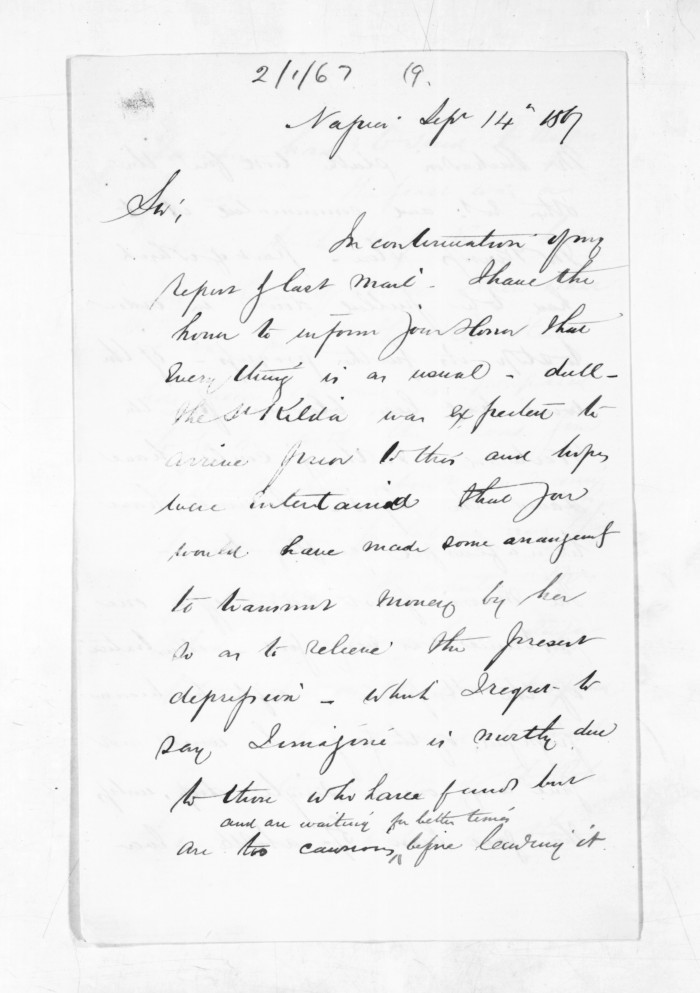 2/1/67 (9.
Napier Sepr 14th 1867
Sir,
In continuation of my
report of last mail - I have the
honor to inform Your Honor that
Every thing is as usual - dull -
the St Kilda was expected to
arrive prior to this and hopes
were entertained that you
would have made some arrangemt
to transmit money by her
so as to relieve the present
depression - which I regret to
say I imagine is mostly due
to those who have funds but
and are waiting for better times
are too cautious before lending it